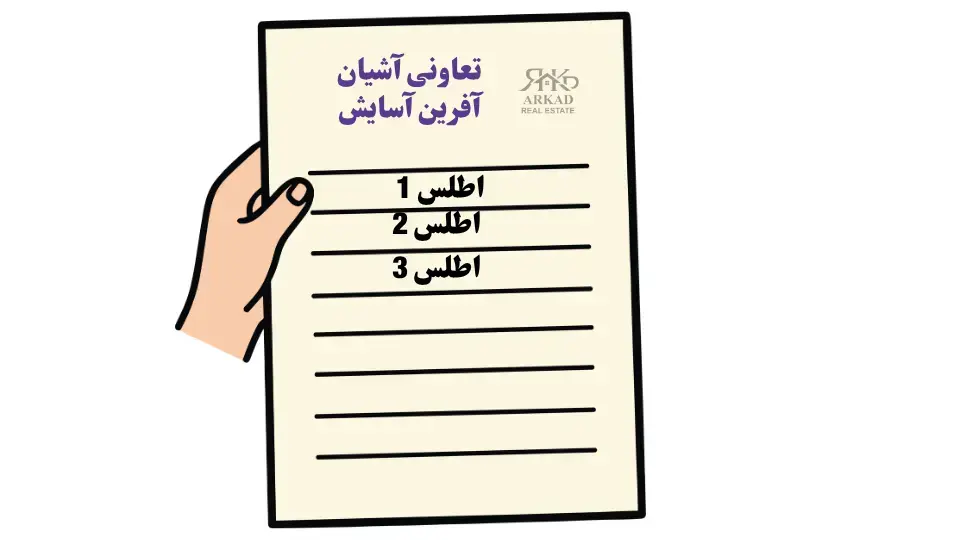 تعاونی آشیان
آفرین آسایش
ARKAD
REAL ESTATE
اطلس 1
اطلس 2
اطلس 3